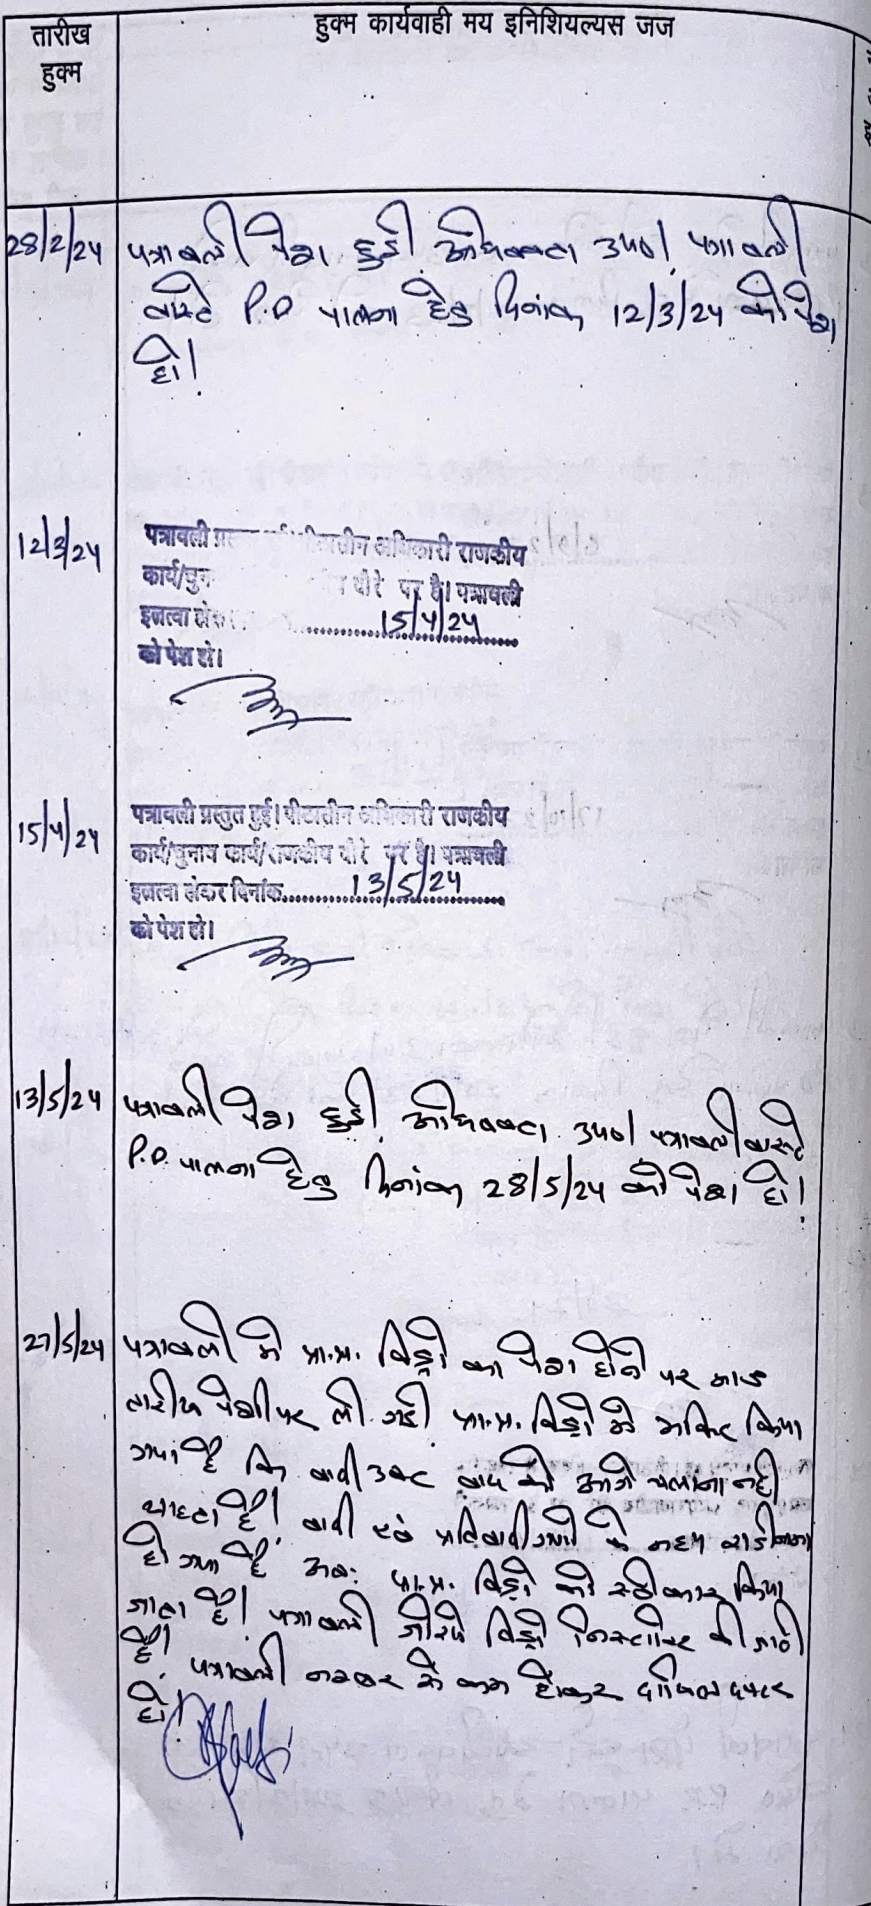 तारीख
हुक्म
हुक्म कार्यवाही मय इनिशियल्यस जज
28/2/24 पत्रावली पेश हुई अधिवक्ता उप0। पत्रावली
वास्ते P.D पालना हेतु दिनांक 12/3/24 को पेश
हो।
12/3/24 पत्रावली पीठासीन अधिकारी राजकीय
कार्य/चुना दौरे पर है। पत्रावली
इत्तला 15/4/24
को पेश हो।
15/4/24 पत्रावली प्रस्तुत हुई। पीठासीन अधिकारी राजकीय
कार्य/चुनाव कार्य/राजकीय दौरे पर है। पत्रावली
इत्तला लेकर दिनांक..........13/5/24..........
को पेश हो।
13/5/24 पत्रावली पेश हुई अधिवक्ता उप0। पत्रावली वास्ते
P.D. पालना हेतु दिनांक 28/5/24 को पेश हो।
27/5/24 पत्रावली मे प्रा.प्र. विड्रो का पेश होने पर आज
तारीख पेशी पर ली गई। प्रा.प्र. विड्रो मे अंकित किया
गया है कि वादी उक्त वाद को आगे चलाना नही
चाहता है। वादी एवं प्रतिवादीगणो के मध्य राजीनामा
हो गया है अतः प्रा.प्र. विड्रो को स्वीकार किया
जाता है। पत्रावली जरिये विड्रो निस्तारित की जाती
है। पत्रावली नम्बर से कम होकर दाखिल दफ्तर
हो।